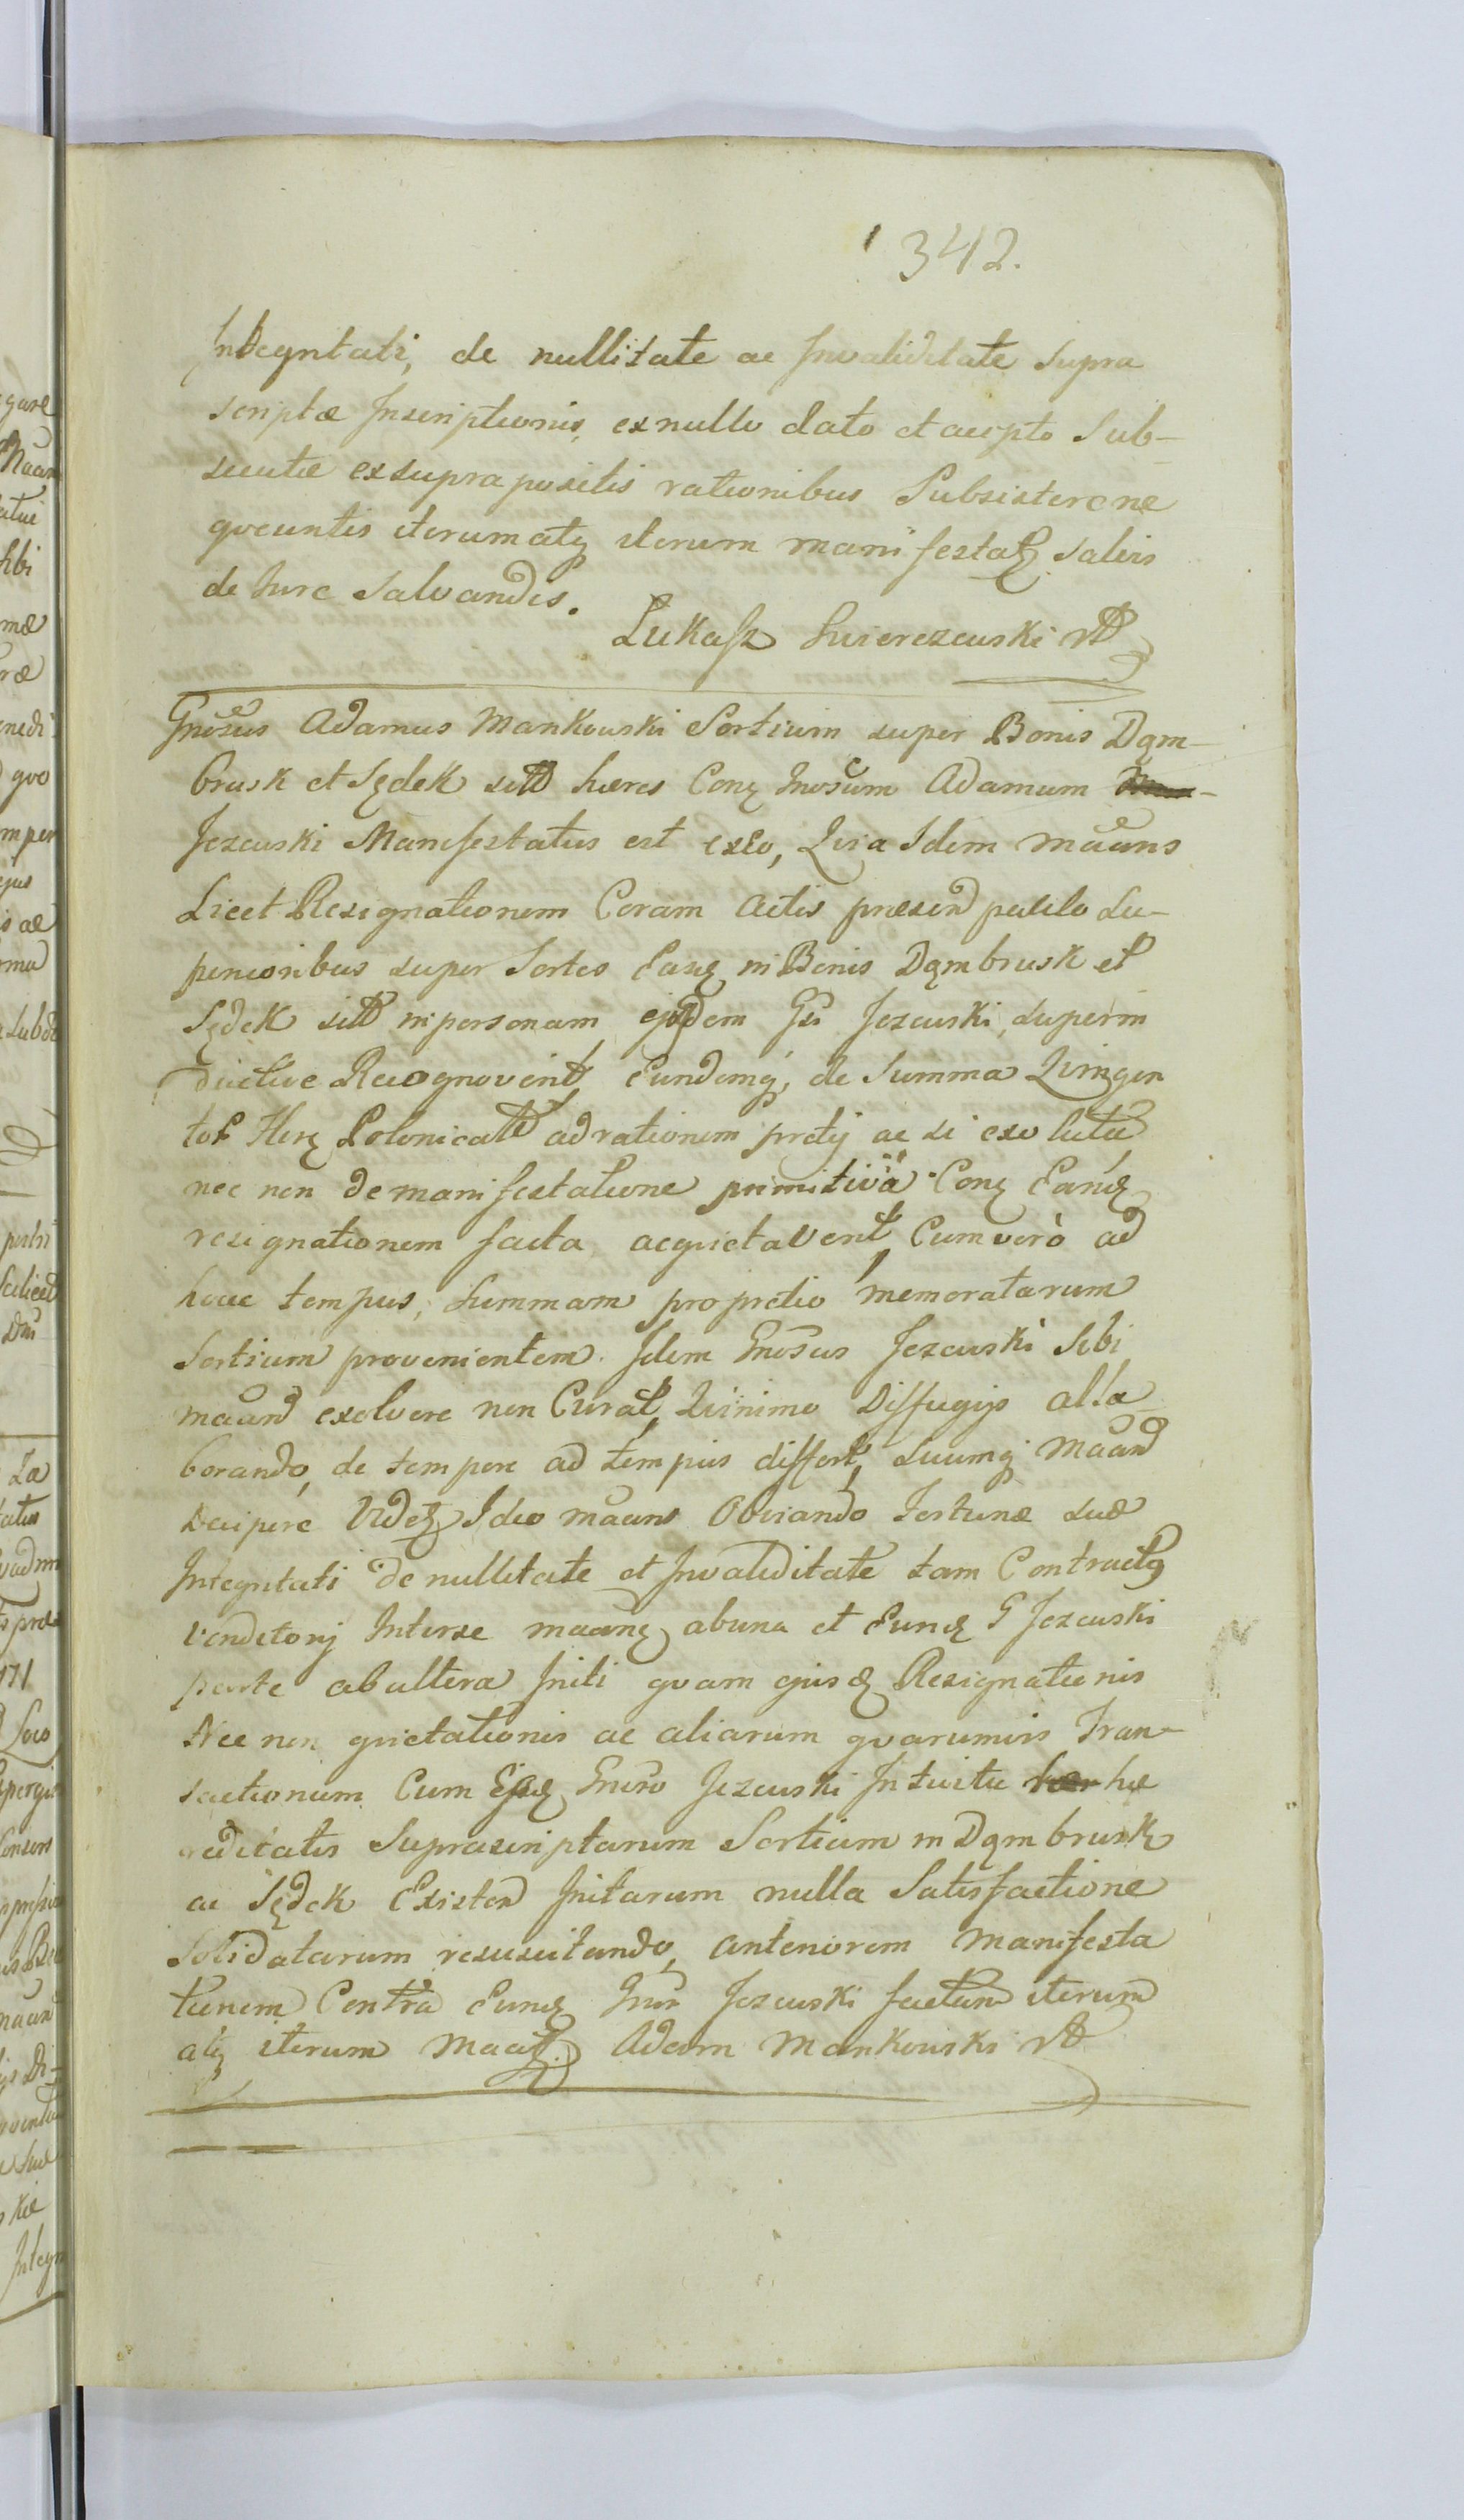 342.
Integritati, de nullitate ac Invaliditate supra
scriptæ Inscriptionis, ex nullo dato et accepto Sub-
secutæ ex supra positis rationibus Subsistere ne
qveuntis iterumatq iterum manifestatq salvis
de Iure Salvandis.
Łukasz Swierczewski
Gnosus Adamus Mankowski Sortium super Bonis Dąm-
brusk et Sędek sitt hæres Conq Gnosum Adamum
Jezewski Manifestatus est ex eo, Qvia Idem maans
Licet Resignationem Coram Actis præsen paulo Su-
perioribus super Sortes Easq in Bonis Dąmbrusk et
Sędek sitt in personam ejusdem Gsi Jezewski, superin
ductive Recognoverit, Eundemq, de Summa Qvingen
tor flor Polonicall ad rationem pretij ac si exolutæ
nec non de manifestatione primitiva Conq Eandq
resignationem facta acqvietaverit, Cum verò ad
hocce tempus, Summam pro pretio memoratarum
Sortium provenientem. Idem Gnosus Jezewski Sibi
maand exolvere non Curat, Qvinimo Diffugijs alla
borando, de tempore ad tempus differt, Suumq Maand
Decipere Videtq Ideo maans Obviando Fortunæ suæ
Integritati de nullitate et Invaliditate tam Contractq
venditorij Inter se maanq ab una et Eundq G Jezewski
parte ab altera Initi qvam ejusdq Resignationis
Nec non qvietationis ac aliarum qvarumvis Tran-
sactionum Cum Eodq Gnoso Jezewski Intuitu hæ
reditatis Suprascriptarum Sortium in Dąmbrusk
ac Sędek Existen Initarum nulla Satisfactione
Solidatarum resuscitando, anteriorem Manifesta
tionem Contra Eundq Gnm Jezewski factam iterum
atq iterum Maatq Adam Mankowski